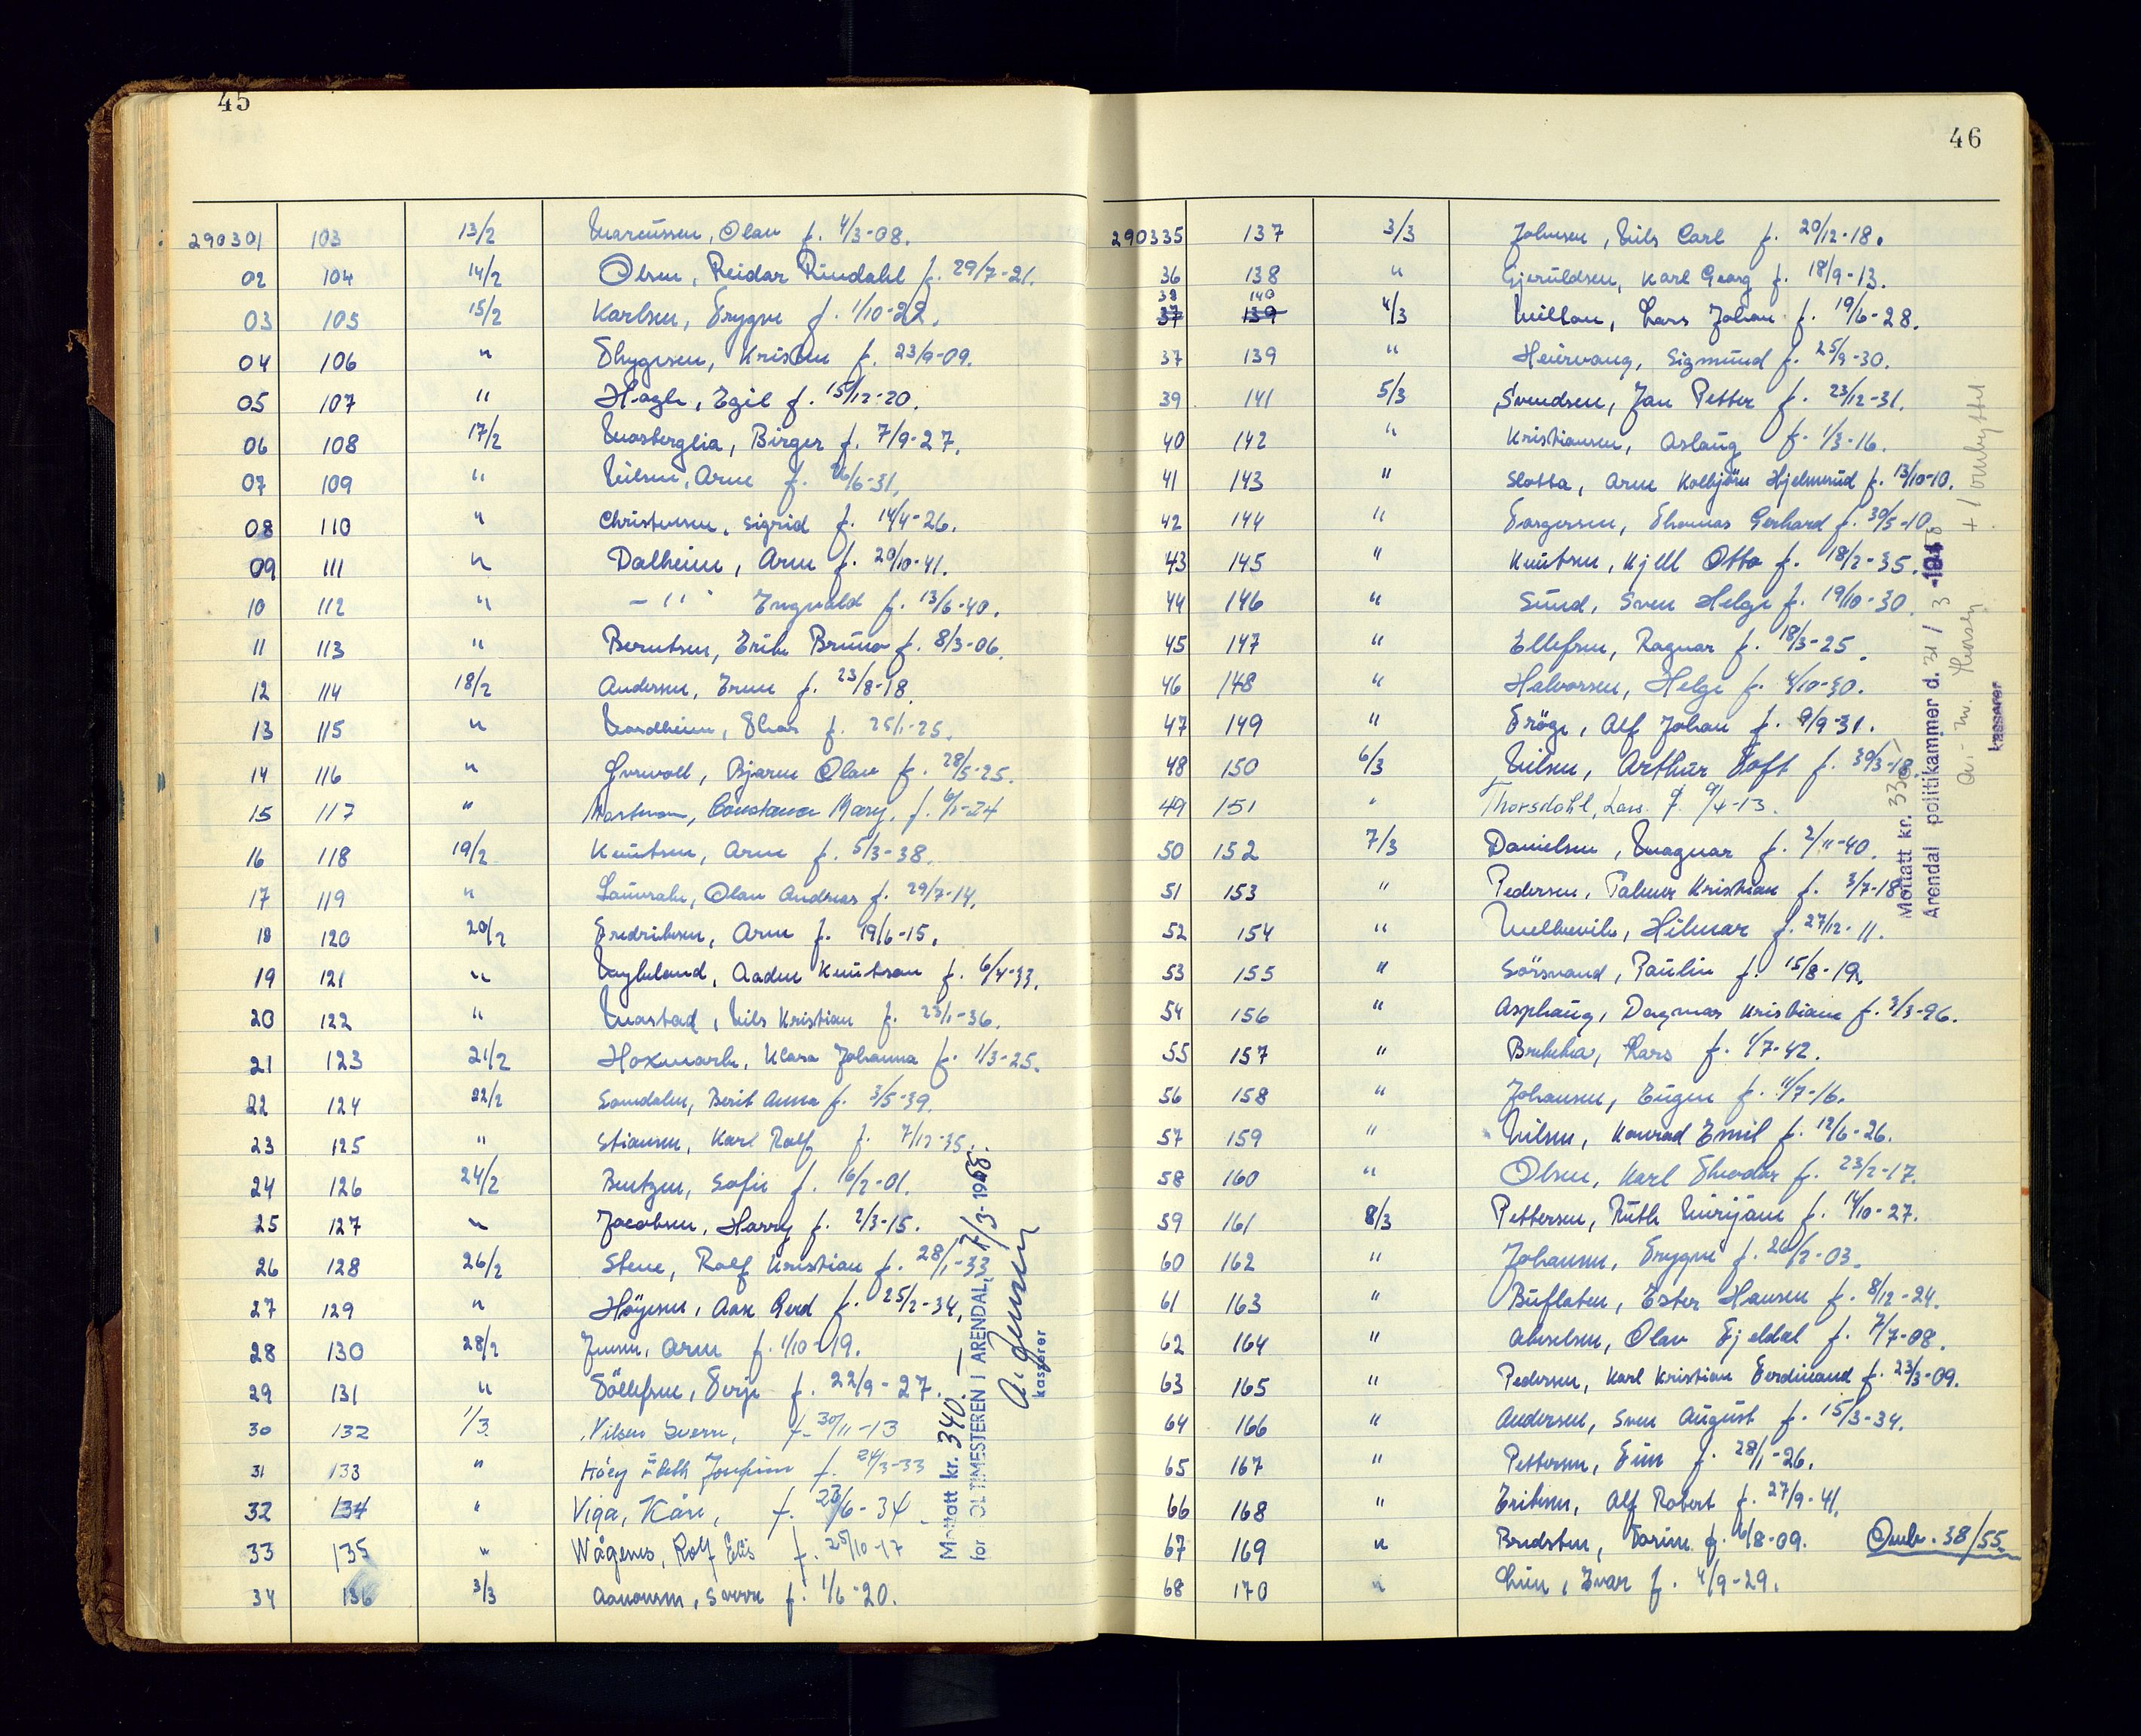 45
290301 103 13/2 Marcussen, Olav f. 4/3-08.
02 104 14/2 Olsen, Reidar Rindahl f. 29/7-21.
03 105 15/2 Karlsen, Trygve f. 1/10-22.
04 106 " Thygesen, Kristen f. 23/9-09.
05 107 " Hagle, Egil f. 15/12-20.
06 108 17/2 Mosberglia, Birger f. 7/9-27.
07 109 " Nilsen, Arne f. /6-31.
08 110 " Christensen, Sigrid f. 14/4-26.
09 111 " Dalheim, Arne f. 20/10-41.
10 112 " - " - Engvald f. 13/6-40.
11 113 " Berntsen, Erik Bruno f. 8/3-06.
12 114 18/2 Andersen, Enne f. 23/8-18.
13 115 " Nordheim, Thor f. 25/1-25.
14 116 " Bjarne Olav f. 28/5-25.
15 117 " Constance Mary. f. 6/1-24
16 118 19/2 Knutsen, Arne f. 5/3-38.
17 119 " Laurrabe, Olav Andreas f. 29/7-14.
18 120 20/2 Fredriksen, Arne f. 19/6-15.
19 121 " Myhland, Aadne Knutson f. 6/4-33.
20 122 " Mastad, Nils Kristian f. 23/1-36.
21 123 21/2 Hoxmark, Klara Johanna f. 1/3-25.
22 124 22/2 Somdalen, Berit Anna f. 3/5-39.
23 125 " Stiansen, Karl Rolf f. 7/12-35.
24 126 24/2 Bentzen, Sofie f. 16/2-01.
25 127 " Jacobsen, Harry f. 2/3-15.
26 128 26/2 Stene, Rolf Kristian f. 28/1-33
27 129 " Höyesen, Aase Gerd f. 25/2-34.
28 130 28/2 Jensen, Arne f. 1/10-19.
29 131 " Töllefsen, Terje f. 22/9-27.
30 132 1/3. Nilsen Sverre, f. 30/11-13
31 133 " Höey Josefine f. 24/3-33
32 134 " Viga, Kåre, f. 23/6-34
33 135 " Wågenes, Rolf Elis f. 25/10-17
34 136 3/3 Aanonsen, Sverre f. 1/6-20.
Mottatt kr. 340.-
for POLITIMESTEREN I ARENDAL, 7/3-1958.
A. Jensen
kasserer
46
290335 137 3/3 Johnsen, Nils Carl f. 20/12-18.
36 138 " Gjeruldsen, Karl Georg f. 18/9-13.
38 140
37 139 4/3 Millan, Lars Johan f. 19/6-28.
37 139 " Heirvang, Sigmund f. 25/9-30.
39 141 5/3 Svendsen, Jan Petter f. 23/12-31.
40 142 " Kristiansen, Aslaug f. 1/3-16.
41 143 " Slotta, Arne Kolbjörn Hjelmerud f. 13/10-10.
42 144 " Torgersen, Thomas Gerhard f. 30/5-10
43 145 " Knutsen, Kjell Otto f. 18/2-35.
44 146 " Sund, Sven Helge f. 19/10-30.
45 147 " Ellefsen, Ragnar f. 18/3-25.
46 148 " Halvorsen, Helge f. 4/10-30.
47 149 " Tröge, Alf Johan f. 9/9-31.
48 150 6/3 Nilsen, Arthur Toft f. 30/3-18.
49 151 " Thorsdahl, Lars. f. 9/4-13.
50 152 7/3 Danielsen, Magnar f. 2/11-40.
51 153 " Pedersen, Palmer Kristian f. 3/7-18
52 154 " Mellemvik, Hilmar f. 27/12-11.
53 155 " Sörsvand, Paulin f. 15/8-19.
54 156 " Asphaug, Dagmar Kristiane f. 3/3-96.
55 157 " Brekka, Lars f. 1/7-42.
56 158 " Johansen, Eugen f. 11/7-16.
57 159 " Nilsen, Konrad Emil f. 12/6-26.
58 160 " Olsen, Karl Theodor f. 23/2-17.
59 161 8/3 Pettersen, Ruth Mirijam f. 14/10-27.
60 162 " Johannsen, Trygve f. 26/2-03.
61 163 " Buflaten, Ester Hansen f. 8/12-24.
62 164 " Akselsen, Olav Fjeldal f. 7/7-08.
63 165 " Pedersen, Karl Kristian Ferdinand f. 23/3-09.
64 166 " Andersen, Sven August f. 15/3-34.
65 167 " Pettersen, Finn f. 28/1-26.
66 168 " Eriksen, Alf Robert f. 27/9-41.
67 169 " Bredsten, Torinn f. 6/8-09. Omb. 38/55.
68 170 " Lien, Ivar f. 4/9-29.
Mottatt kr. 330,-
Arendal politikammer d. 31/3-1958
+ 1 ombyttet
kasserer